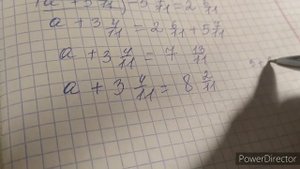 a + 3 4/11 = 2 6/11 + 5 7/11
a + 3 4/11 = 7 13/11
a + 3 4/11 = 8 2/11
PowerDirector